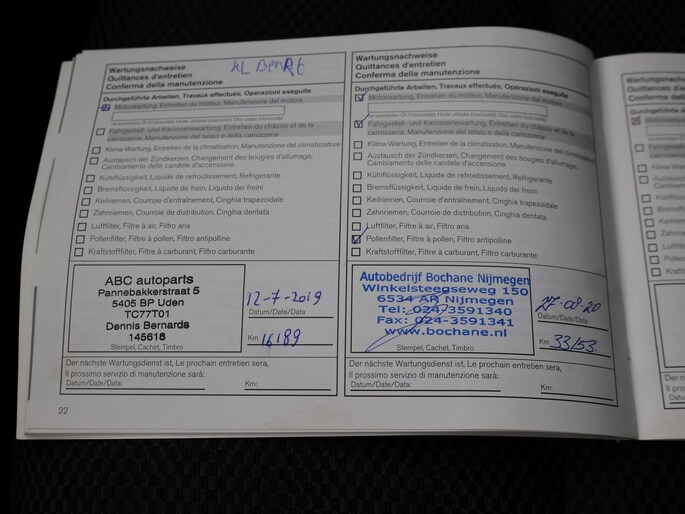 Wartungsnachweise
Quittances d'entretien
Conferma della manutenzione
KL Beurt
Durchgeführte Arbeiten, Travaux effectués, Operazioni eseguite
Motorwartung, Entretien du moteur, Manutenzione del motore
Fahrgestell- und Karosseriewartung, Entretien du châssis et de la
carrosserie, Manutenzione del telaio e della carrozzeria
Klima-Wartung, Entretien de la climatisation, Manutenzione del climatizzatore
Austausch der Zündkerzen, Changement des bougies d'allumage,
Cambiamento delle candele d'accensione
Kühlflüssigkeit, Liquide de refroidissement, Refrigerante
Bremsflüssigkeit, Liquide de frein, Liquido dei freini
Keilriemen, Courroie d'entraînement, Cinghia trapezoidale
Zahnriemen, Courroie de distribution, Cinghia dentata
Luftfilter, Filtre à air, Filtro aria
Pollenfilter, Filtre à pollen, Filtro antipolline
Kraftstofffilter, Filtre à carburant, Filtro carburante
ABC autoparts
Pannebakkerstraat 5
5405 BP Uden
TC77T01
Dennis Bernards
145618
Stempel, Cachet, Timbro
12-7-2019
Datum/Date/Data
Km: 16189
Der nächste Wartungsdienst ist, Le prochain entretien sera,
Il prossimo servizio di manutenzione sarà:
Datum/Date/Data: Km:
22
Wartungsnachweise
Quittances d'entretien
Conferma della manutenzione
Durchgeführte Arbeiten, Travaux effectués, Operazioni eseguite
Motorwartung, Entretien du moteur, Manutenzione del motore
verwendetes Öl (Viskosität), Huile utilisée (viscosité), Olio usato (viscosità)
Fahrgestell- und Karosseriewartung, Entretien du châssis et de la
carrosserie, Manutenzione del telaio e della carrozzeria
Klima-Wartung, Entretien de la climatisation, Manutenzione del climatizzatore
Austausch der Zündkerzen, Changement des bougies d'allumage,
Cambiamento delle candele d'accensione
Kühlflüssigkeit, Liquide de refroidissement, Refrigerante
Bremsflüssigkeit, Liquide de frein, Liquido dei freini
Keilriemen, Courroie d'entraînement, Cinghia trapezoidale
Zahnriemen, Courroie de distribution, Cinghia dentata
Luftfilter, Filtre à air, Filtro aria
Pollenfilter, Filtre à pollen, Filtro antipolline
Kraftstofffilter, Filtre à carburant, Filtro carburante
Autobedrijf Bochane Nijmegen
Winkelsteegseweg 150
6534 AR Nijmegen
Tel: 024-3591340
Fax: 024-3591341
www.bochane.nl
Stempel, Cachet, Timbro
27-08-20
Datum/Date/Data
Km: 33153.
Der nächste Wartungsdienst ist, Le prochain entretien sera,
Il prossimo servizio di manutenzione sarà:
Datum/Date/Data: Km: